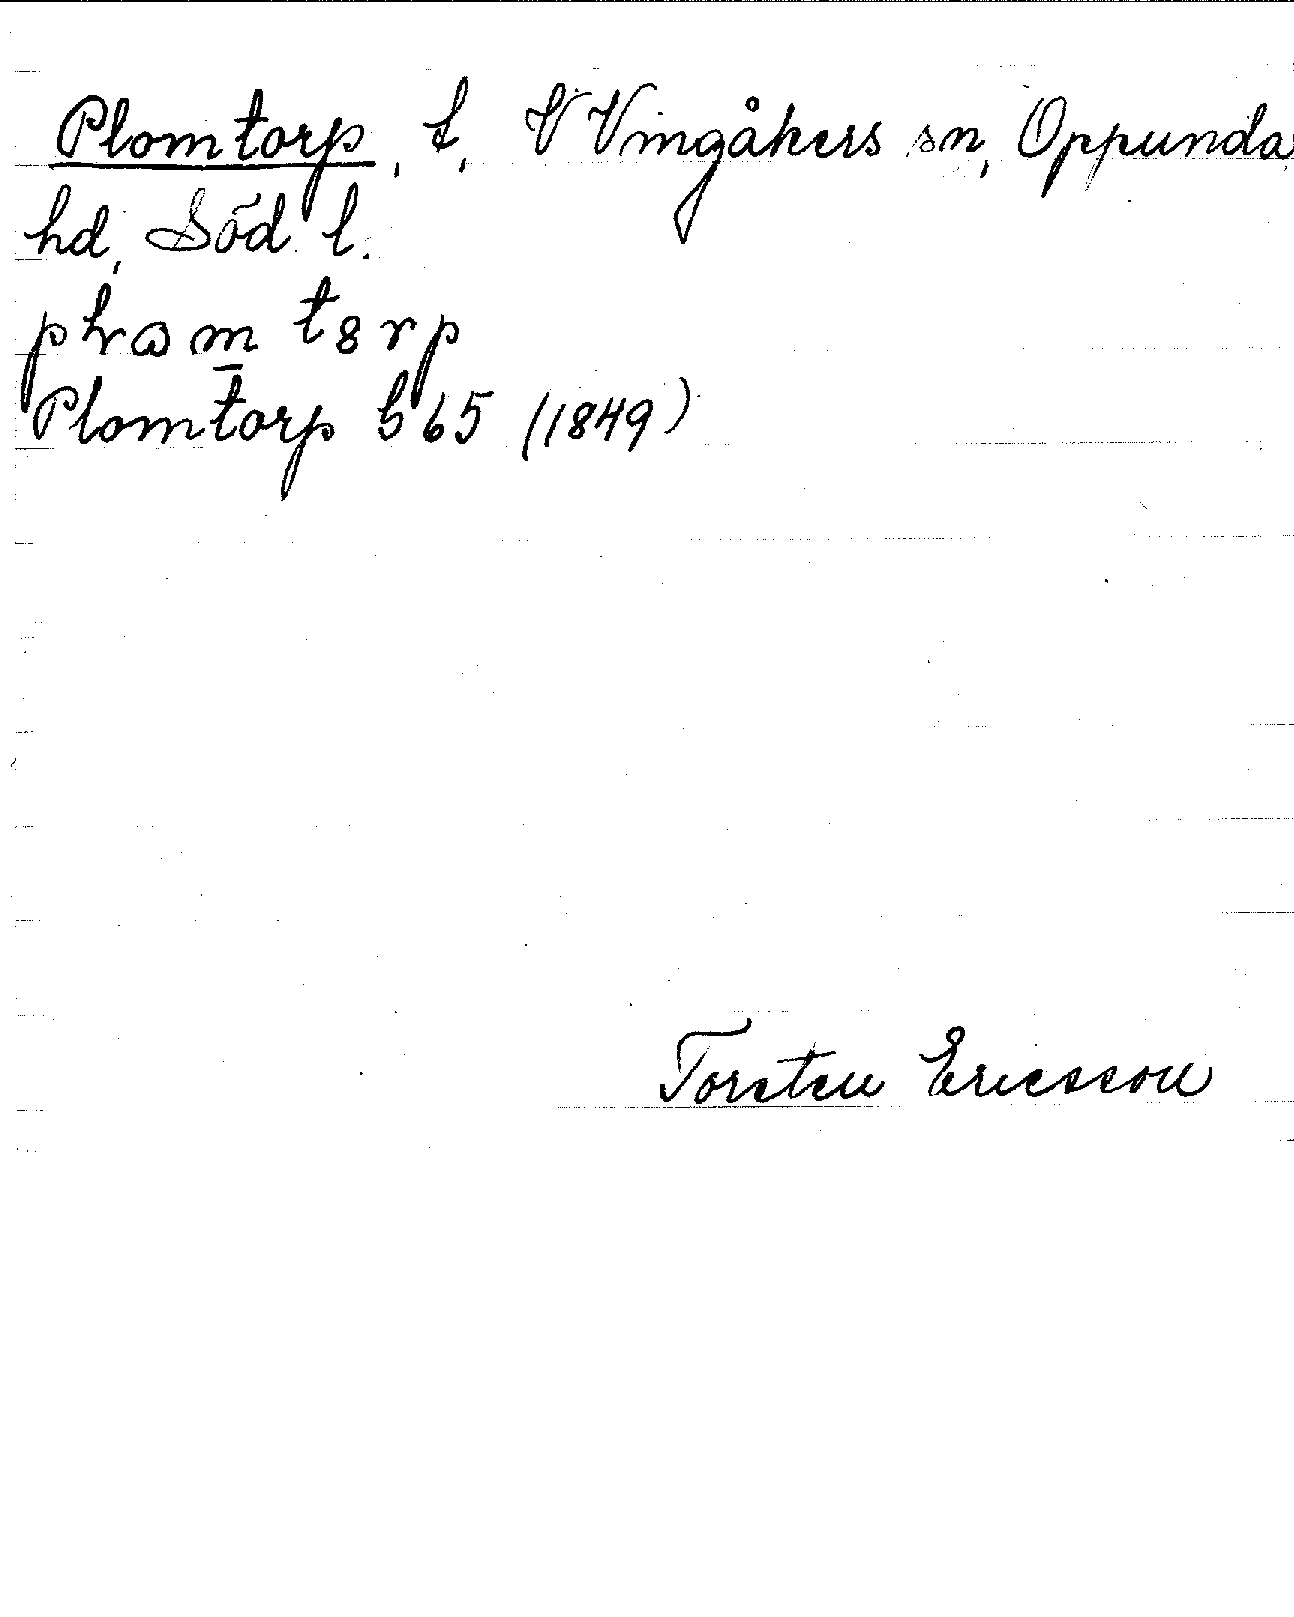 Plomtorp, t, V Vingåkers sn, Oppunda
hd, Söd l.
Plomtorp b 65 (1849)
Torsten Ericsson